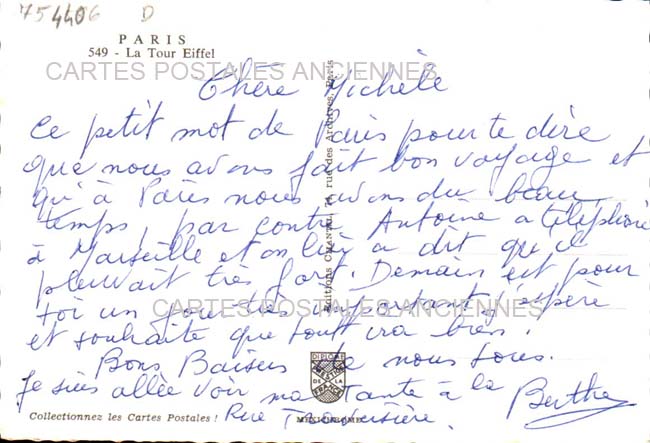 754406 D
PARIS
549 - La Tour Eiffel
CARTES POSTALES ANCIENNES
Chère Michèle
Ce petit mot de Paris pour te dire
que nous avons fait bon voyage et
qu'à Paris nous avons du beau
temps, par contre Antoine a téléphoné
à Marseille et on lui a dit qu'il
pleuvait très fort. Demain est pour
toi un jour très important, j'espère
CARTES POSTALES ANCIENNES
et souhaite que tout ira bien.
Bons Baisers de nous tous.
Je suis allée voir ma Tante à la
Rue Traversière.
Berthe
Editions CHANTAL, 74, rue des Archives, Paris
DE LA
FRANCE
MEXICHROME
Collectionnez les Cartes Postales !